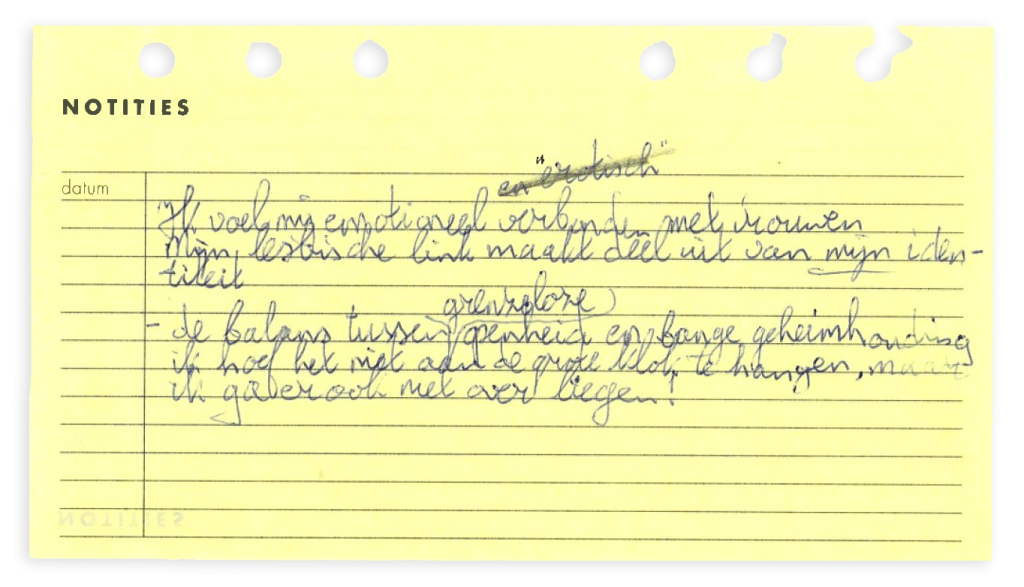 NOTITIES
datum
en "erotisch"
Ik voel mij emotioneel verbonden met vrouwen
Mijn lesbische link maakt deel uit van mijn iden-
titeit
grenzeloze
- de balans tussen openheid en bange geheimhouding
ik hoef het niet aan de grote klok te hangen, maar
ik ga er ook niet over liegen!
NOTITIES